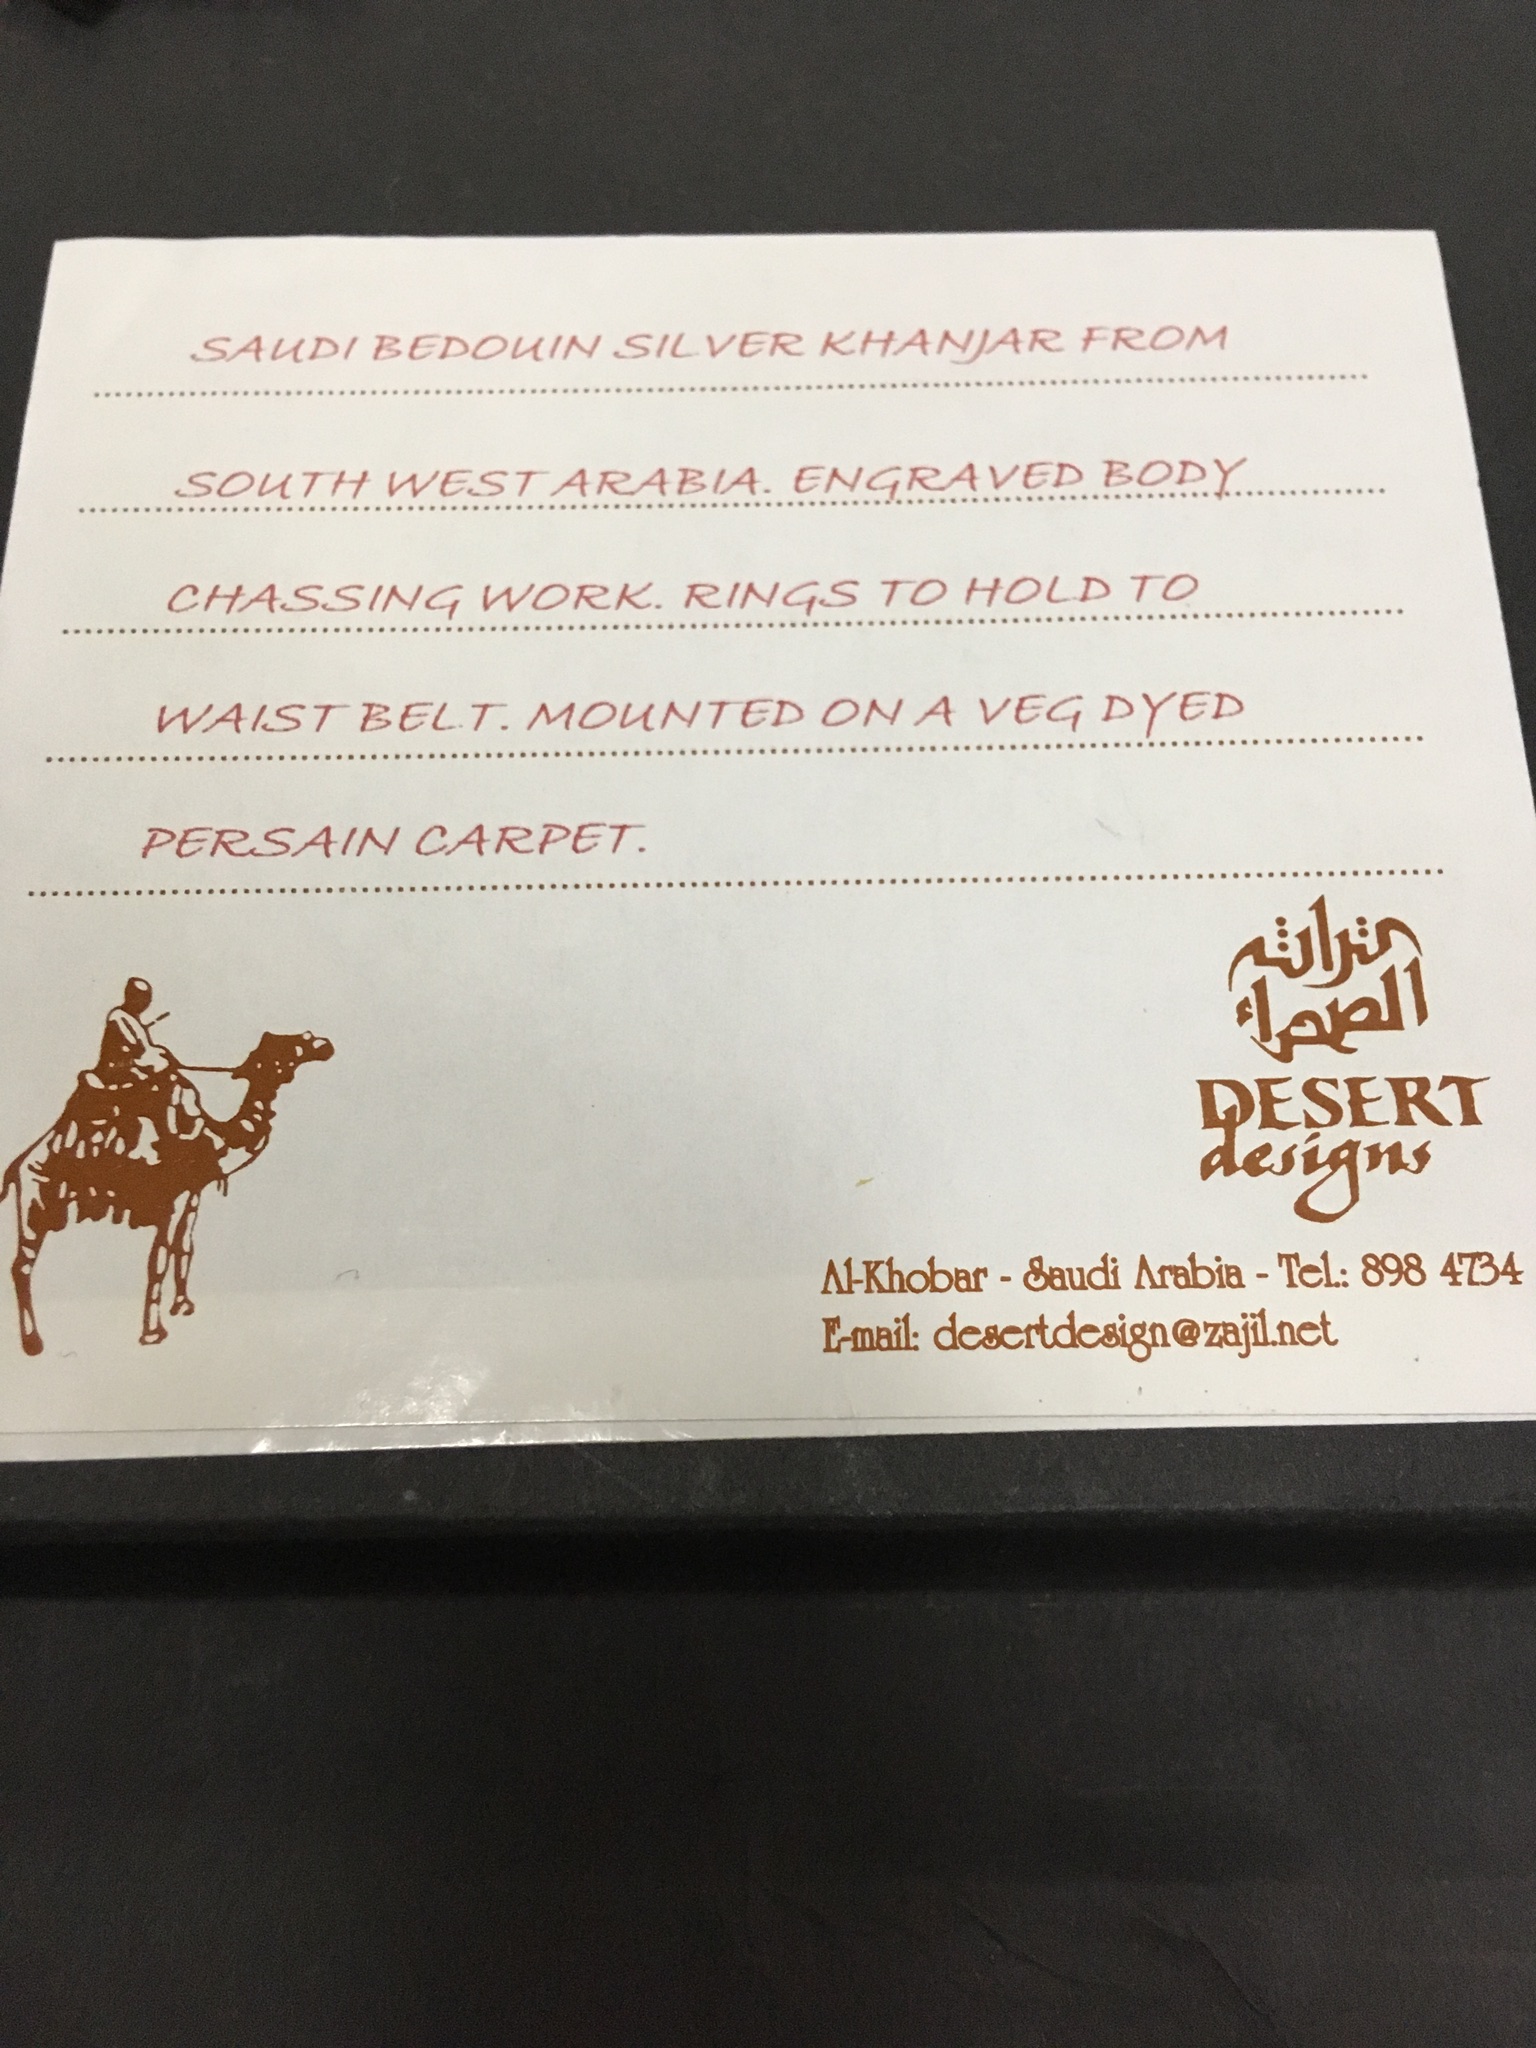 SAUDI BEDOUIN SILVER KHANJAR FROM
SOUTH WEST ARABIA. ENGRAVED BODY
CHASSING WORK. RINGS TO HOLD TO
WAIST BELT. MOUNTED ON A VEG DYED
PERSAIN CARPET.
تراث
الصحراء
DESERT
designs
Al-Khobar - Saudi Arabia - Tel.: 898 4734
E-mail: desertdesign@zajil.net